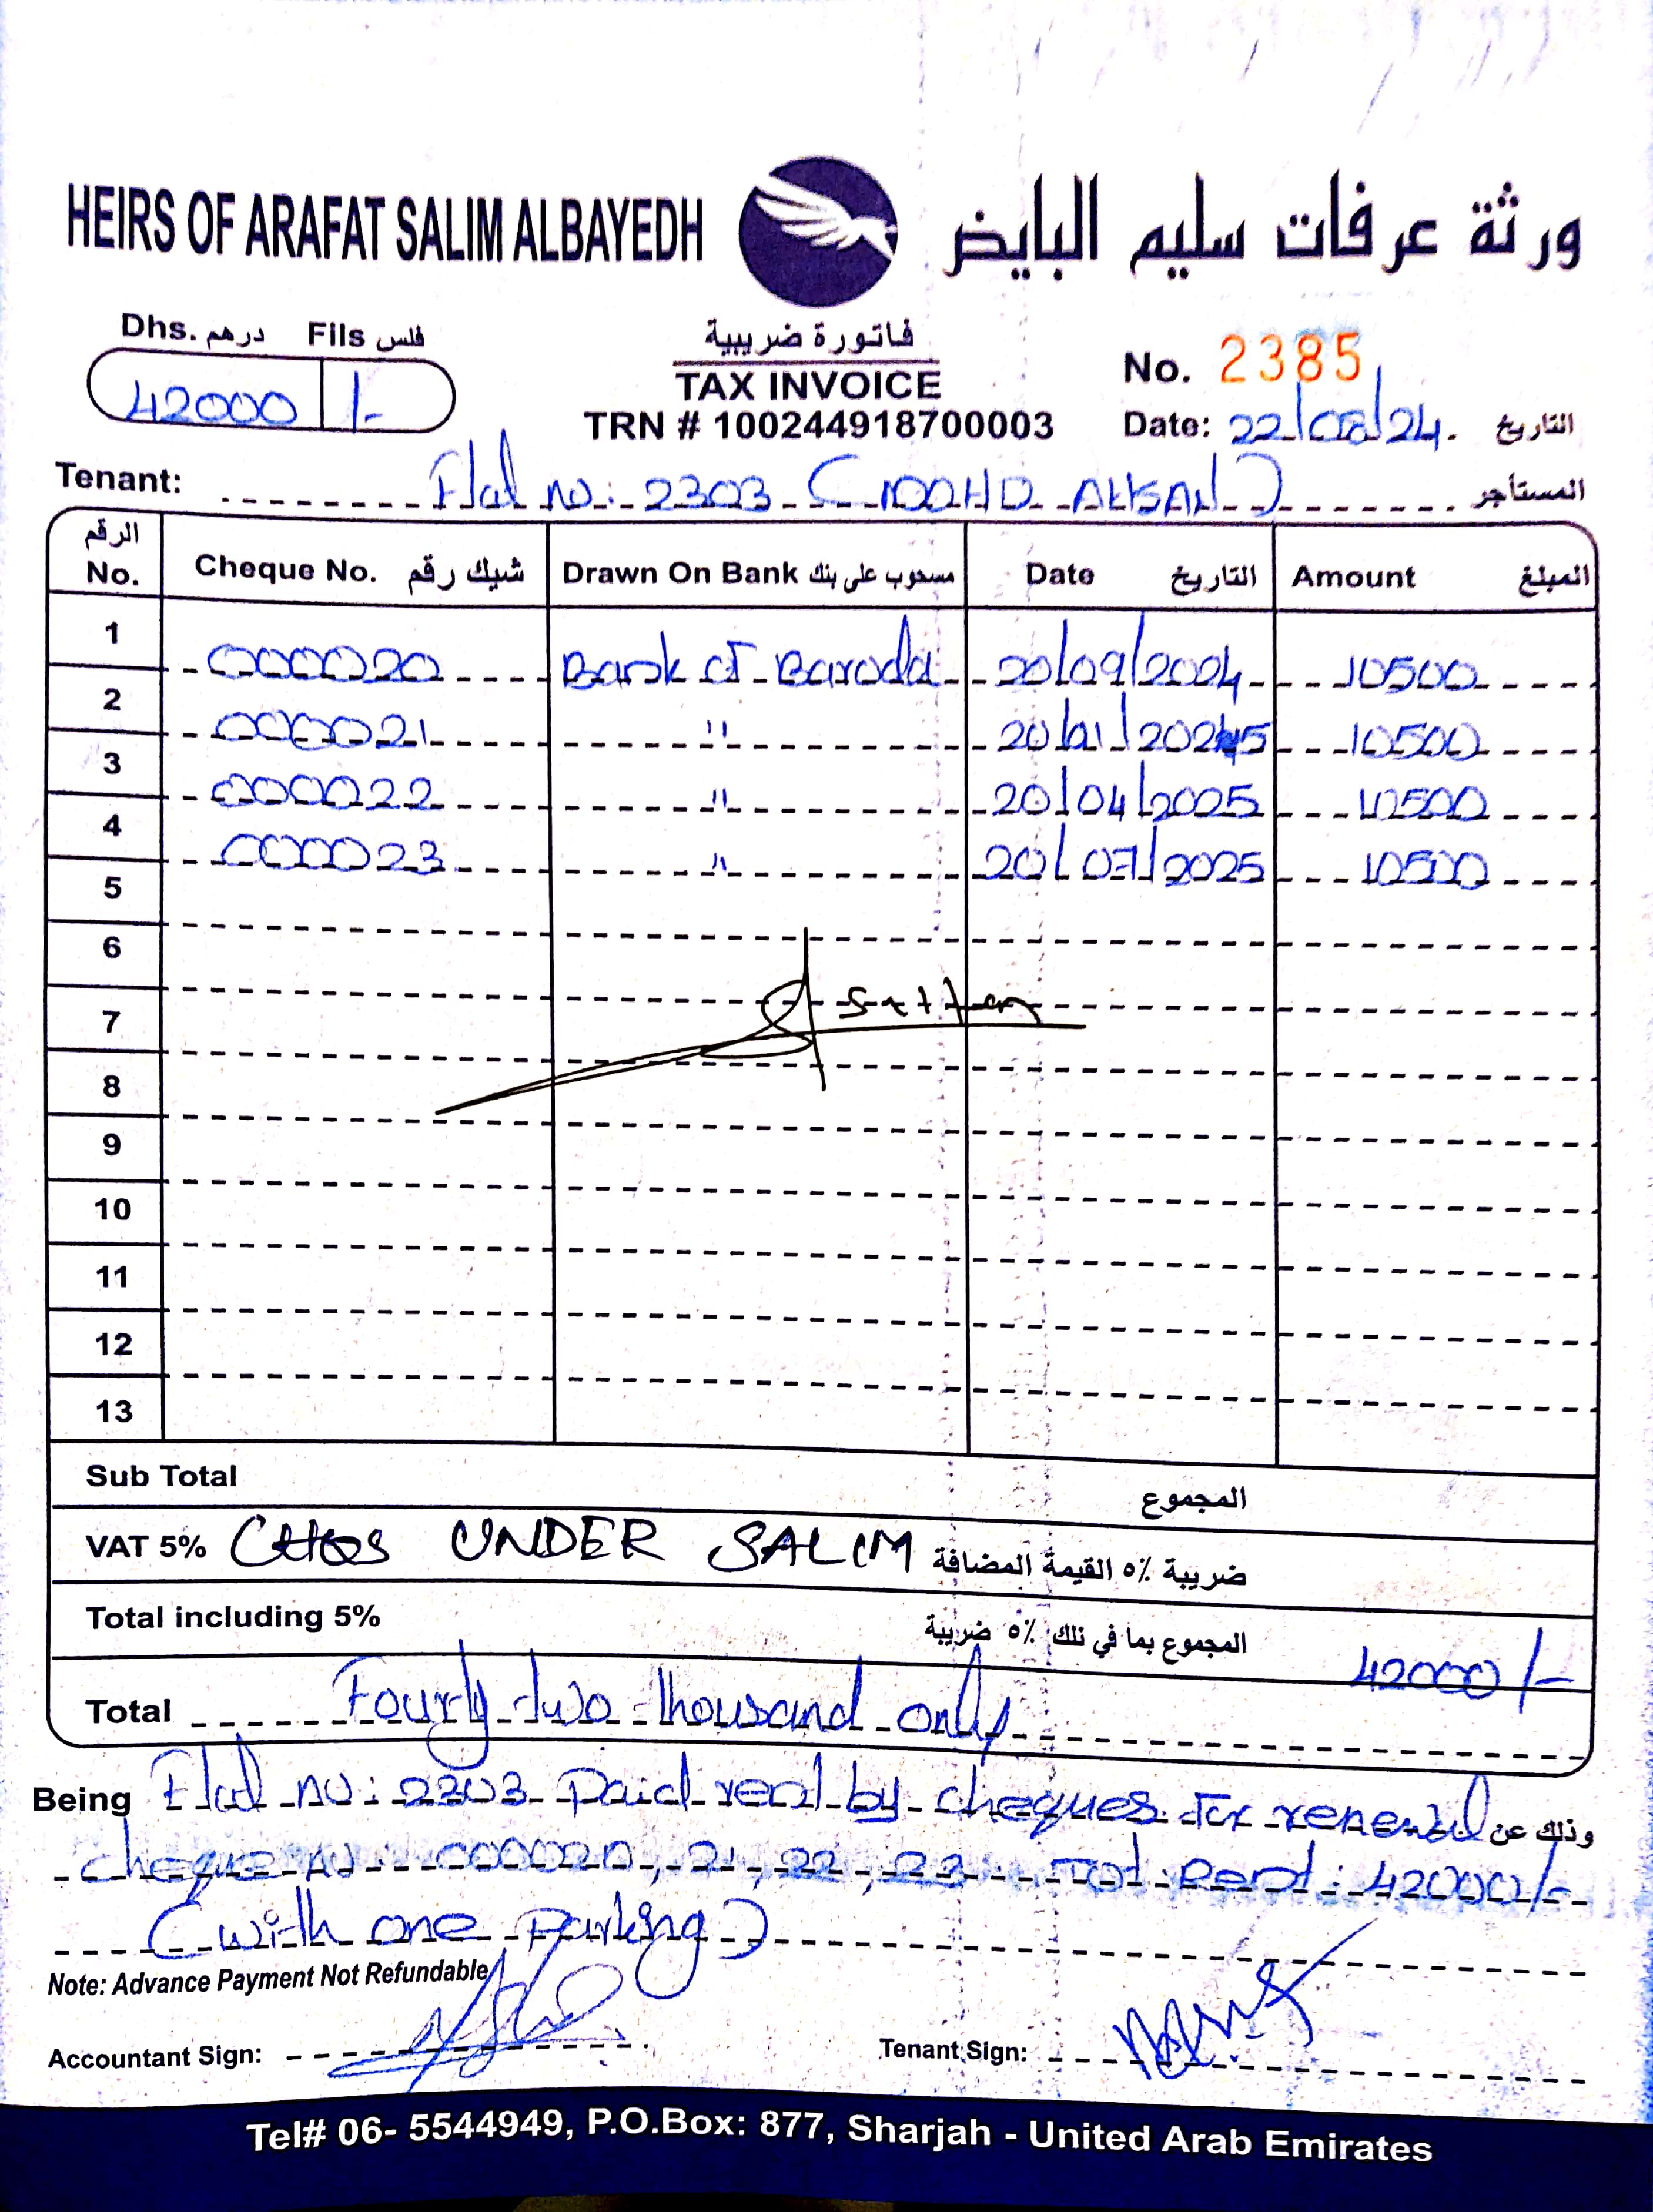 HEIRS OF ARAFAT SALIM ALBAYEDH ورثة عرفات سليم البايض
Dhs. درهم Fils فلس
42000 /-
فاتورة ضريبية
TAX INVOICE
TRN # 100244918700003
No. 2385
Date: 22/08/24. التاريخ
Tenant: Flat no: 2303 المستأجر
الرقم No. Cheque No. شيك رقم Drawn On Bank مسحوب على بنك Date التاريخ Amount المبلغ
1 000020 Bank of Baroda 20/09/2024 10500
2 000021 " 20/01/2025 10500
3 000022 " 20/04/2025 10500
4 000023 " 20/07/2025 10500
5
6
7
8
9
10
11
12
13
Sub Total المجموع
VAT 5% CHQS UNDER SALIM ضريبة ٥% القيمة المضافة
Total including 5% المجموع بما في ذلك ٥% ضريبة 42000/-
Total Fourty two thousand only
Being Flat no: 2303 Paid rent by cheques for renewal وذلك عن
cheque no 000020, 21, 22, 23 Tot Rent: 42000/-
(with one parking)
Note: Advance Payment Not Refundable
Accountant Sign: Tenant Sign:
Tel# 06- 5544949, P.O.Box: 877, Sharjah - United Arab Emirates